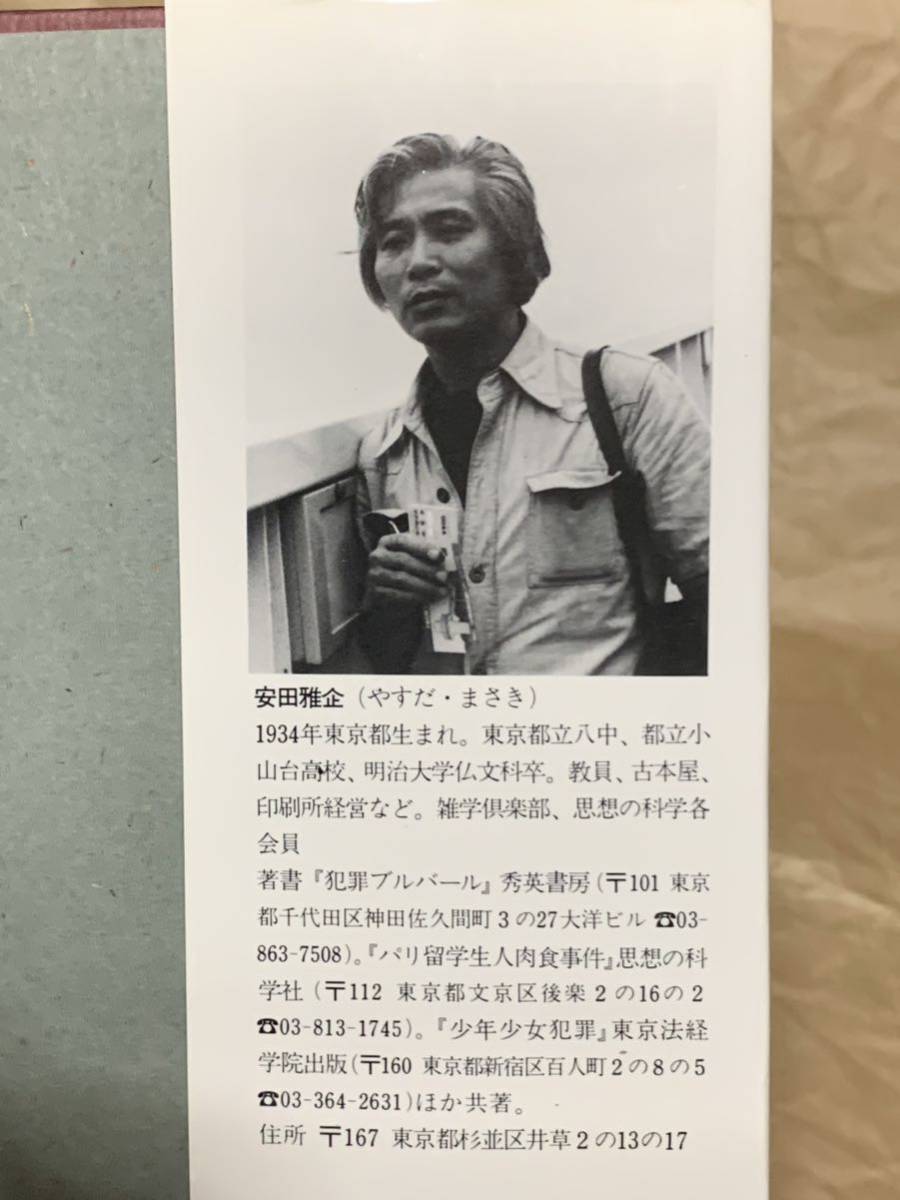 安田雅企（やすだ・まさき）
1934年東京都生まれ。東京都立八中、都立小
山台高校、明治大学仏文科卒。教員、古本屋、
印刷所経営など。雑学倶楽部、思想の科学各
会員
著書『犯罪ブルバール』秀英書房（〒101 東京
都千代田区神田佐久間町3の27大洋ビル ☎03-
863-7508）。『パリ留学生人肉食事件』思想の科
学社（〒112 東京都文京区後楽2の16の2
☎03-813-1745）。『少年少女犯罪』東京法経
学院出版（〒160 東京都新宿区百人町2の8の5
☎03-364-2631）ほか共著。
住所 〒167 東京都杉並区井草2の13の17